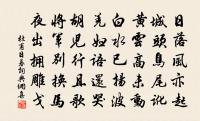 日落風亦起
城頭烏尾訛
黃雲高未動
白水已揚波
羌婦語還哭
胡兒行且歌
將軍別換馬
夜出擁雕戈
杜甫日暮